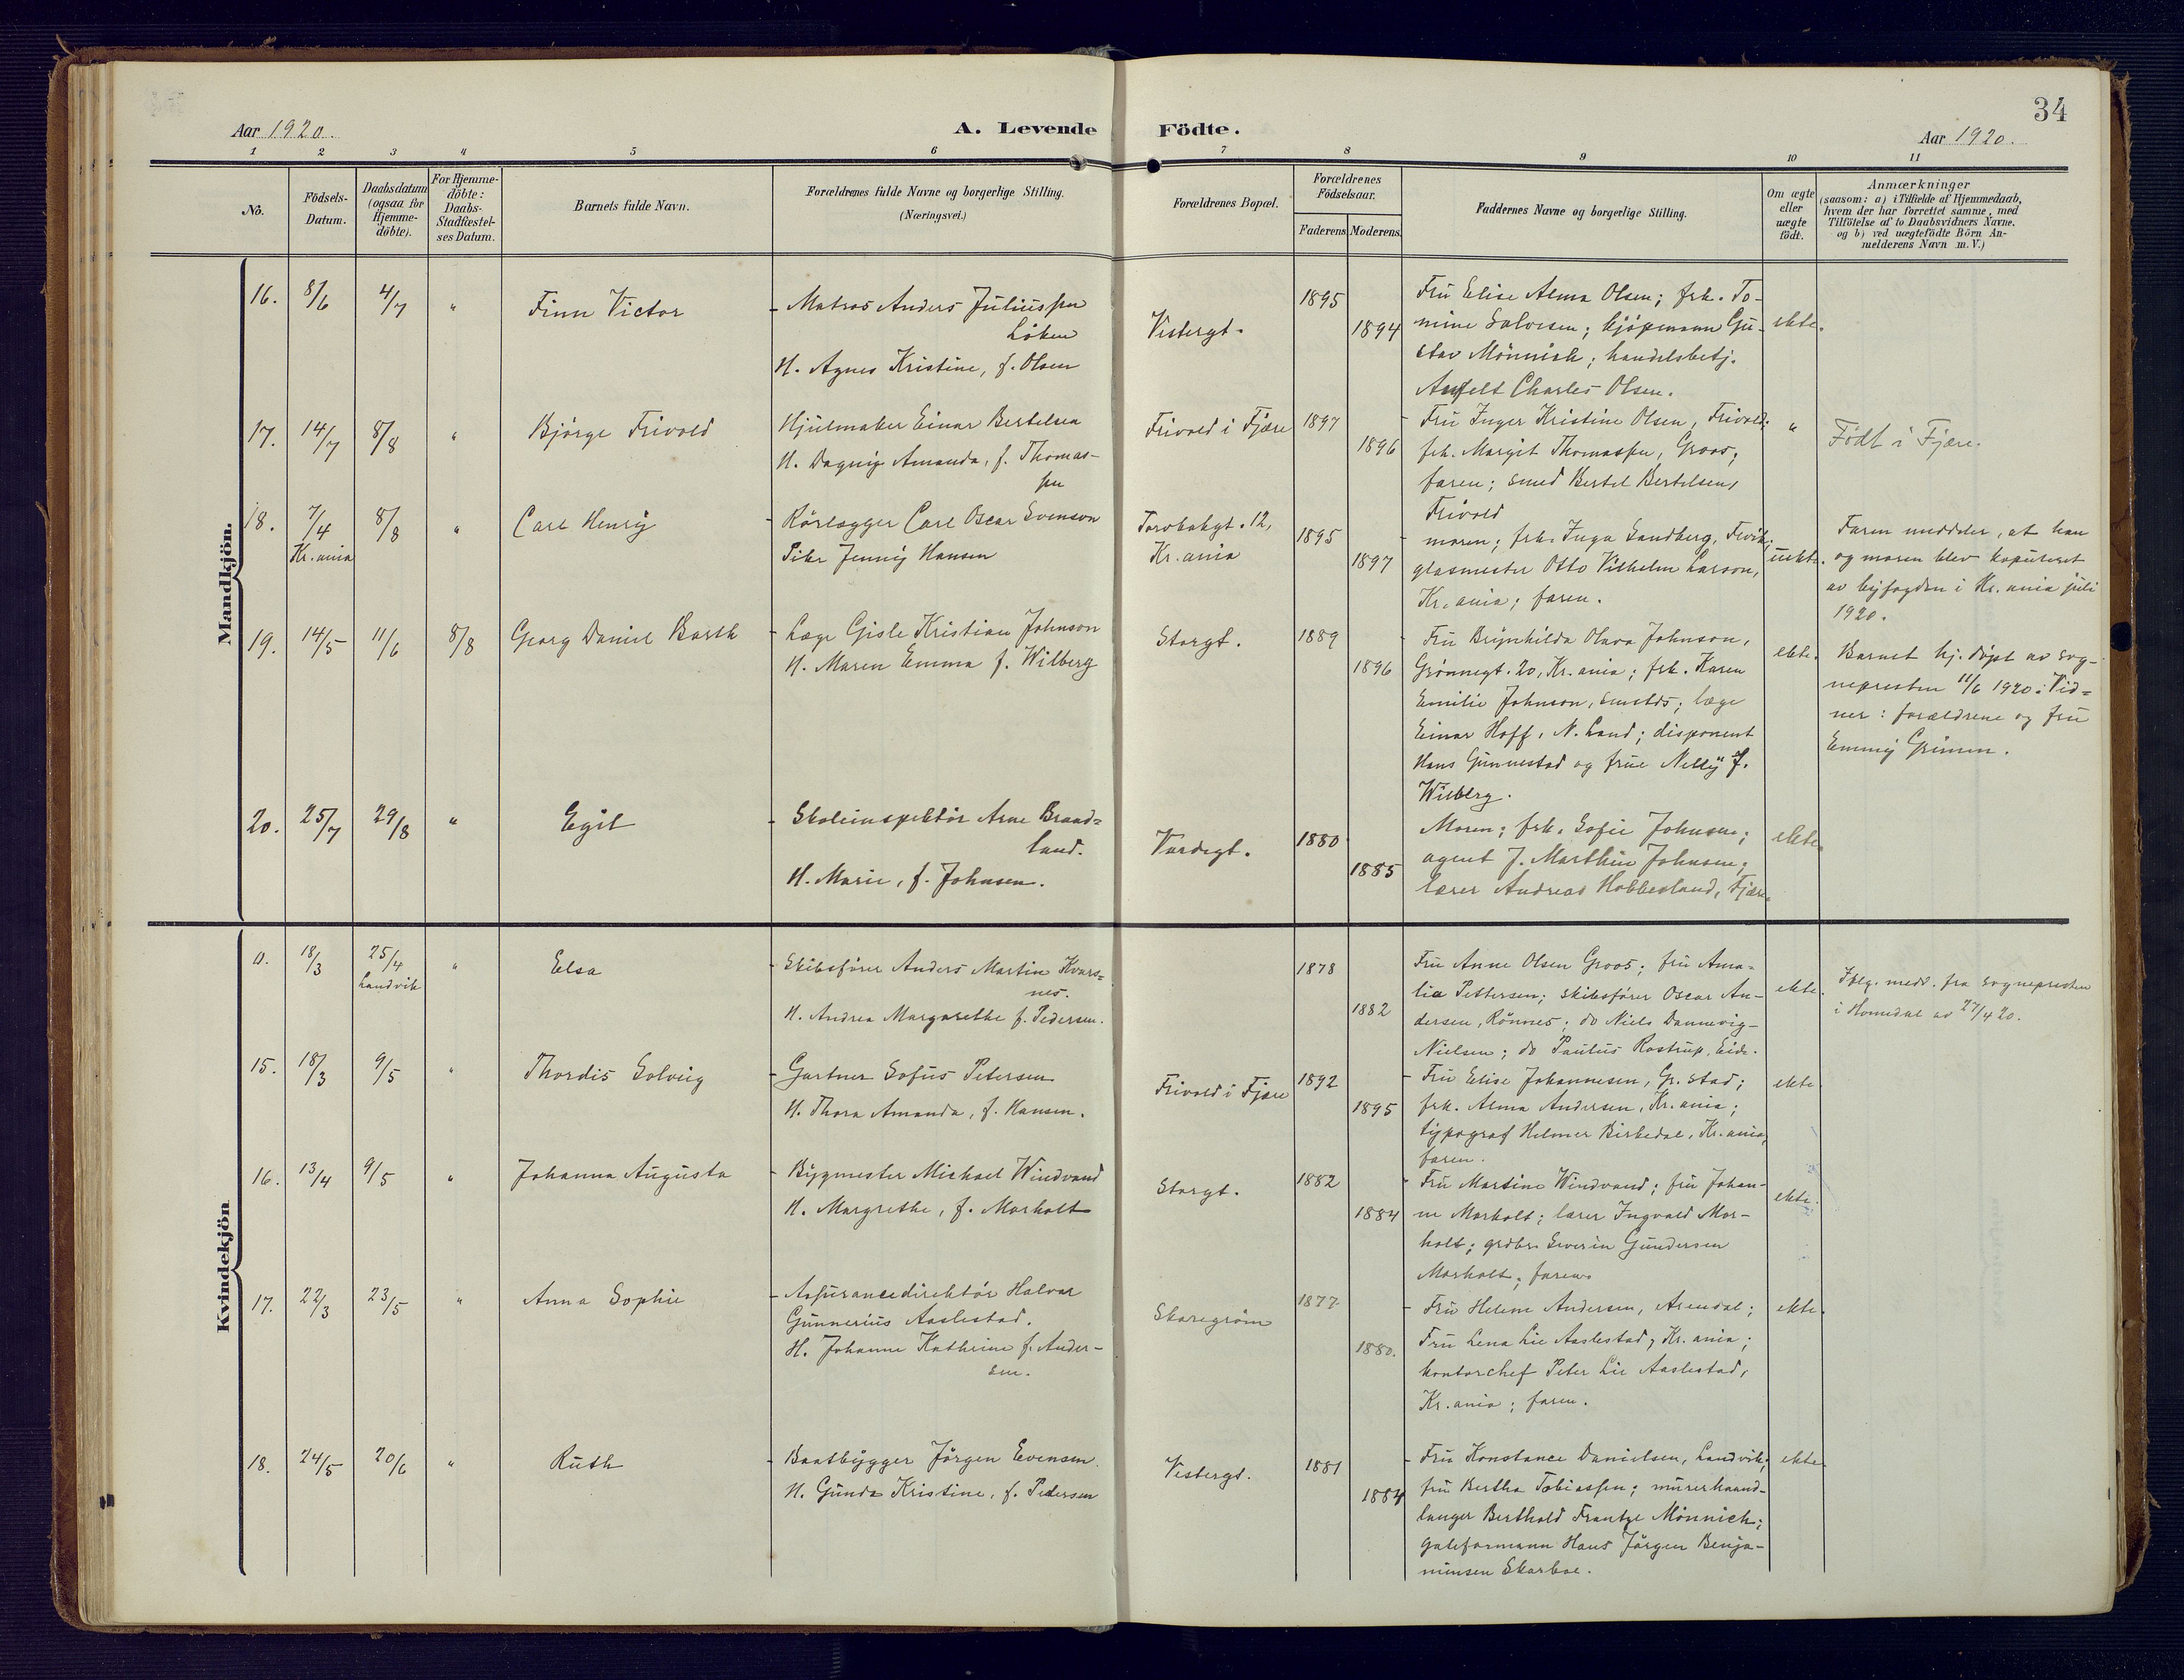 34
Aar 1920.
A. Levende Födte.
Aar 1920.
1 2 3 4 5 6 7 8 9 10 11
No.
Födsels-
Datum.
Daabsdatum
(ogsaa for
Hjemme-
döbte).
For Hjemme-
döbte:
Daabs-
Stadfæstel-
ses Datum.
Barnets fulde Navn.
Forældrenes fulde Navne og borgerlige Stilling.
(Næringsvei.)
Forældrenes Bopæl.
Forældrenes
Födselsaar.
Faderens. Moderens.
Faddernes Navne og borgerlige Stilling.
Om ægte
eller
uægte
födt.
Anmærkninger
(saasom: a) i Tilfælde af Hjemmedaab,
hvem der har forrettet samme, med
Tilföielse af to Daabsvidners Navne.
og b) ved uægtefödte Börn An-
melderens Navn m. V.)
Mandkjön.
16. 8/6 4/7 " Finn Victor
Matros Anders Juliussen
Løken
H. Agnes Kristine, f. Olsen
Vestergt.
1895
1894
Fru Elise Alma Olsen; frk. To-
mine Salvesen; kjøpmann Gu-
stav Mönnich; handelsbetj.
Anfelt Charles Olsen.
ekte.
17. 14/7 8/8 " Bjørge Frivold
Hjulmaker Einar Bertelsen
H. Dagny Amanda, f. Thomas-
sen
Frivold i Fjære
1897
1896
Fru Inger Kristine Olsen, Frivold;
frk. Margit Thomassen, Groos;
faren; smed Bertel Bertelsen,
Frivold
"
Født i Fjære.
18. 7/4 8/8 " Carl Henry
Kr.ania
Rørlægger Carl Oscar Svenson
Pike Jenny Hansen
Torvbakgt. 12,
Kr.ania
1895
1897
moren; frk. Inga Sandberg, Fevik;
glasmester Otto Vilhelm Larson,
Kr.ania; faren.
uekte.
Faren meddeler, at han
og moren blev kopuleret
av byfogden i Kr.ania juli
1920.
19. 14/5 11/6 8/8 Georg Daniel Barth
Læge Gisle Kristian Johnson
H. Maren Emma f. Wilberg
Storgt.
1889
1896
Fru Brynhilda Olava Johnson,
Grønnegt. 20, Kr.ania; frk. Karen
Emilie Johnson, smstds; læge
Einar Hoff, N. Land; disponent
Hans Gunnestad og frue Nelly f.
Wilberg.
ekte.
Barnet hj. døpt av sog-
nepresten 11/6 1920. Vid-
ner: forældrene og fru
Emmy Grimm.
20. 25/7 29/8 " Egil
Skoleinspektör Arne Brand-
land.
H. Marie, f. Johnsen.
Vardegt.
1880
1885
Moren; frk. Sofie Johnsen;
agent J. Marthin Johnsen;
lærer Andreas Hobbesland, Fjære.
ekte.
Kvindekjön
0. 18/3 25/4 " Elsa
Landvik
Skibsfører Anders Martin Kvars-
nes.
H. Andrea Margarethe f. Pedersen.
1878
1882
Fru Anne Olsen Groos; fru Ama-
lia Pettersen; skibsfører Oscar An-
dersen, Rønnes; do Niels Dannevig-
Nielsen; do Paulus Rostrup, Eide.
ekte.
Iflg. medd. fra sognepresten
i Homedal av 27/4 20.
15. 18/3 9/5 " Thordis Solveig
Gartner Sofus Petersen
H. Thora Amanda, f. Hansen.
Frivold i Fjære
1892
1895
Fru Elise Johannesen, Gr.stad;
frk. Alma Andersen, Kr.ania;
typograf Helmer Birkedal, Kr.ania,
faren.
ekte.
16. 13/4 9/5 " Johanna Augusta
Bygmester Michael Windvand
H. Margrethe, f. Morholt
Storgt.
1882
1884
Fru Martine Windvand; fru Johan-
ne Morholt; lærer Ingvald Mor-
holt; grdbr. Severin Gundersen
Morholt; faren.
ekte.
17. 22/3 23/5 " Anna Sophie
Assurancedirektör Halvor
Gunnerius Aaslestad.
H. Johanne Kathrine f. Ander-
sen.
Skaregrøm
1877
1880.
Fru Helene Andersen, Arendal;
Fru Lena Lie Aaslestad, Kr.ania;
kontorchef Peter Lie Aaslestad,
Kr.ania; faren.
ekte.
18. 24/5 20/6 " Ruth
Baatbygger Jörgen Evensen.
H. Gunda Kristine, f. Pedersen
Vestergt.
1881
1884
Fru Konstance Danielsen, Landvik;
fru Bertha Tobiassen; murerhaand-
langer Berthold Frantze Mönnich;
gateformann Hans Jörgen Benja-
minsen Skarboe.
ekte.